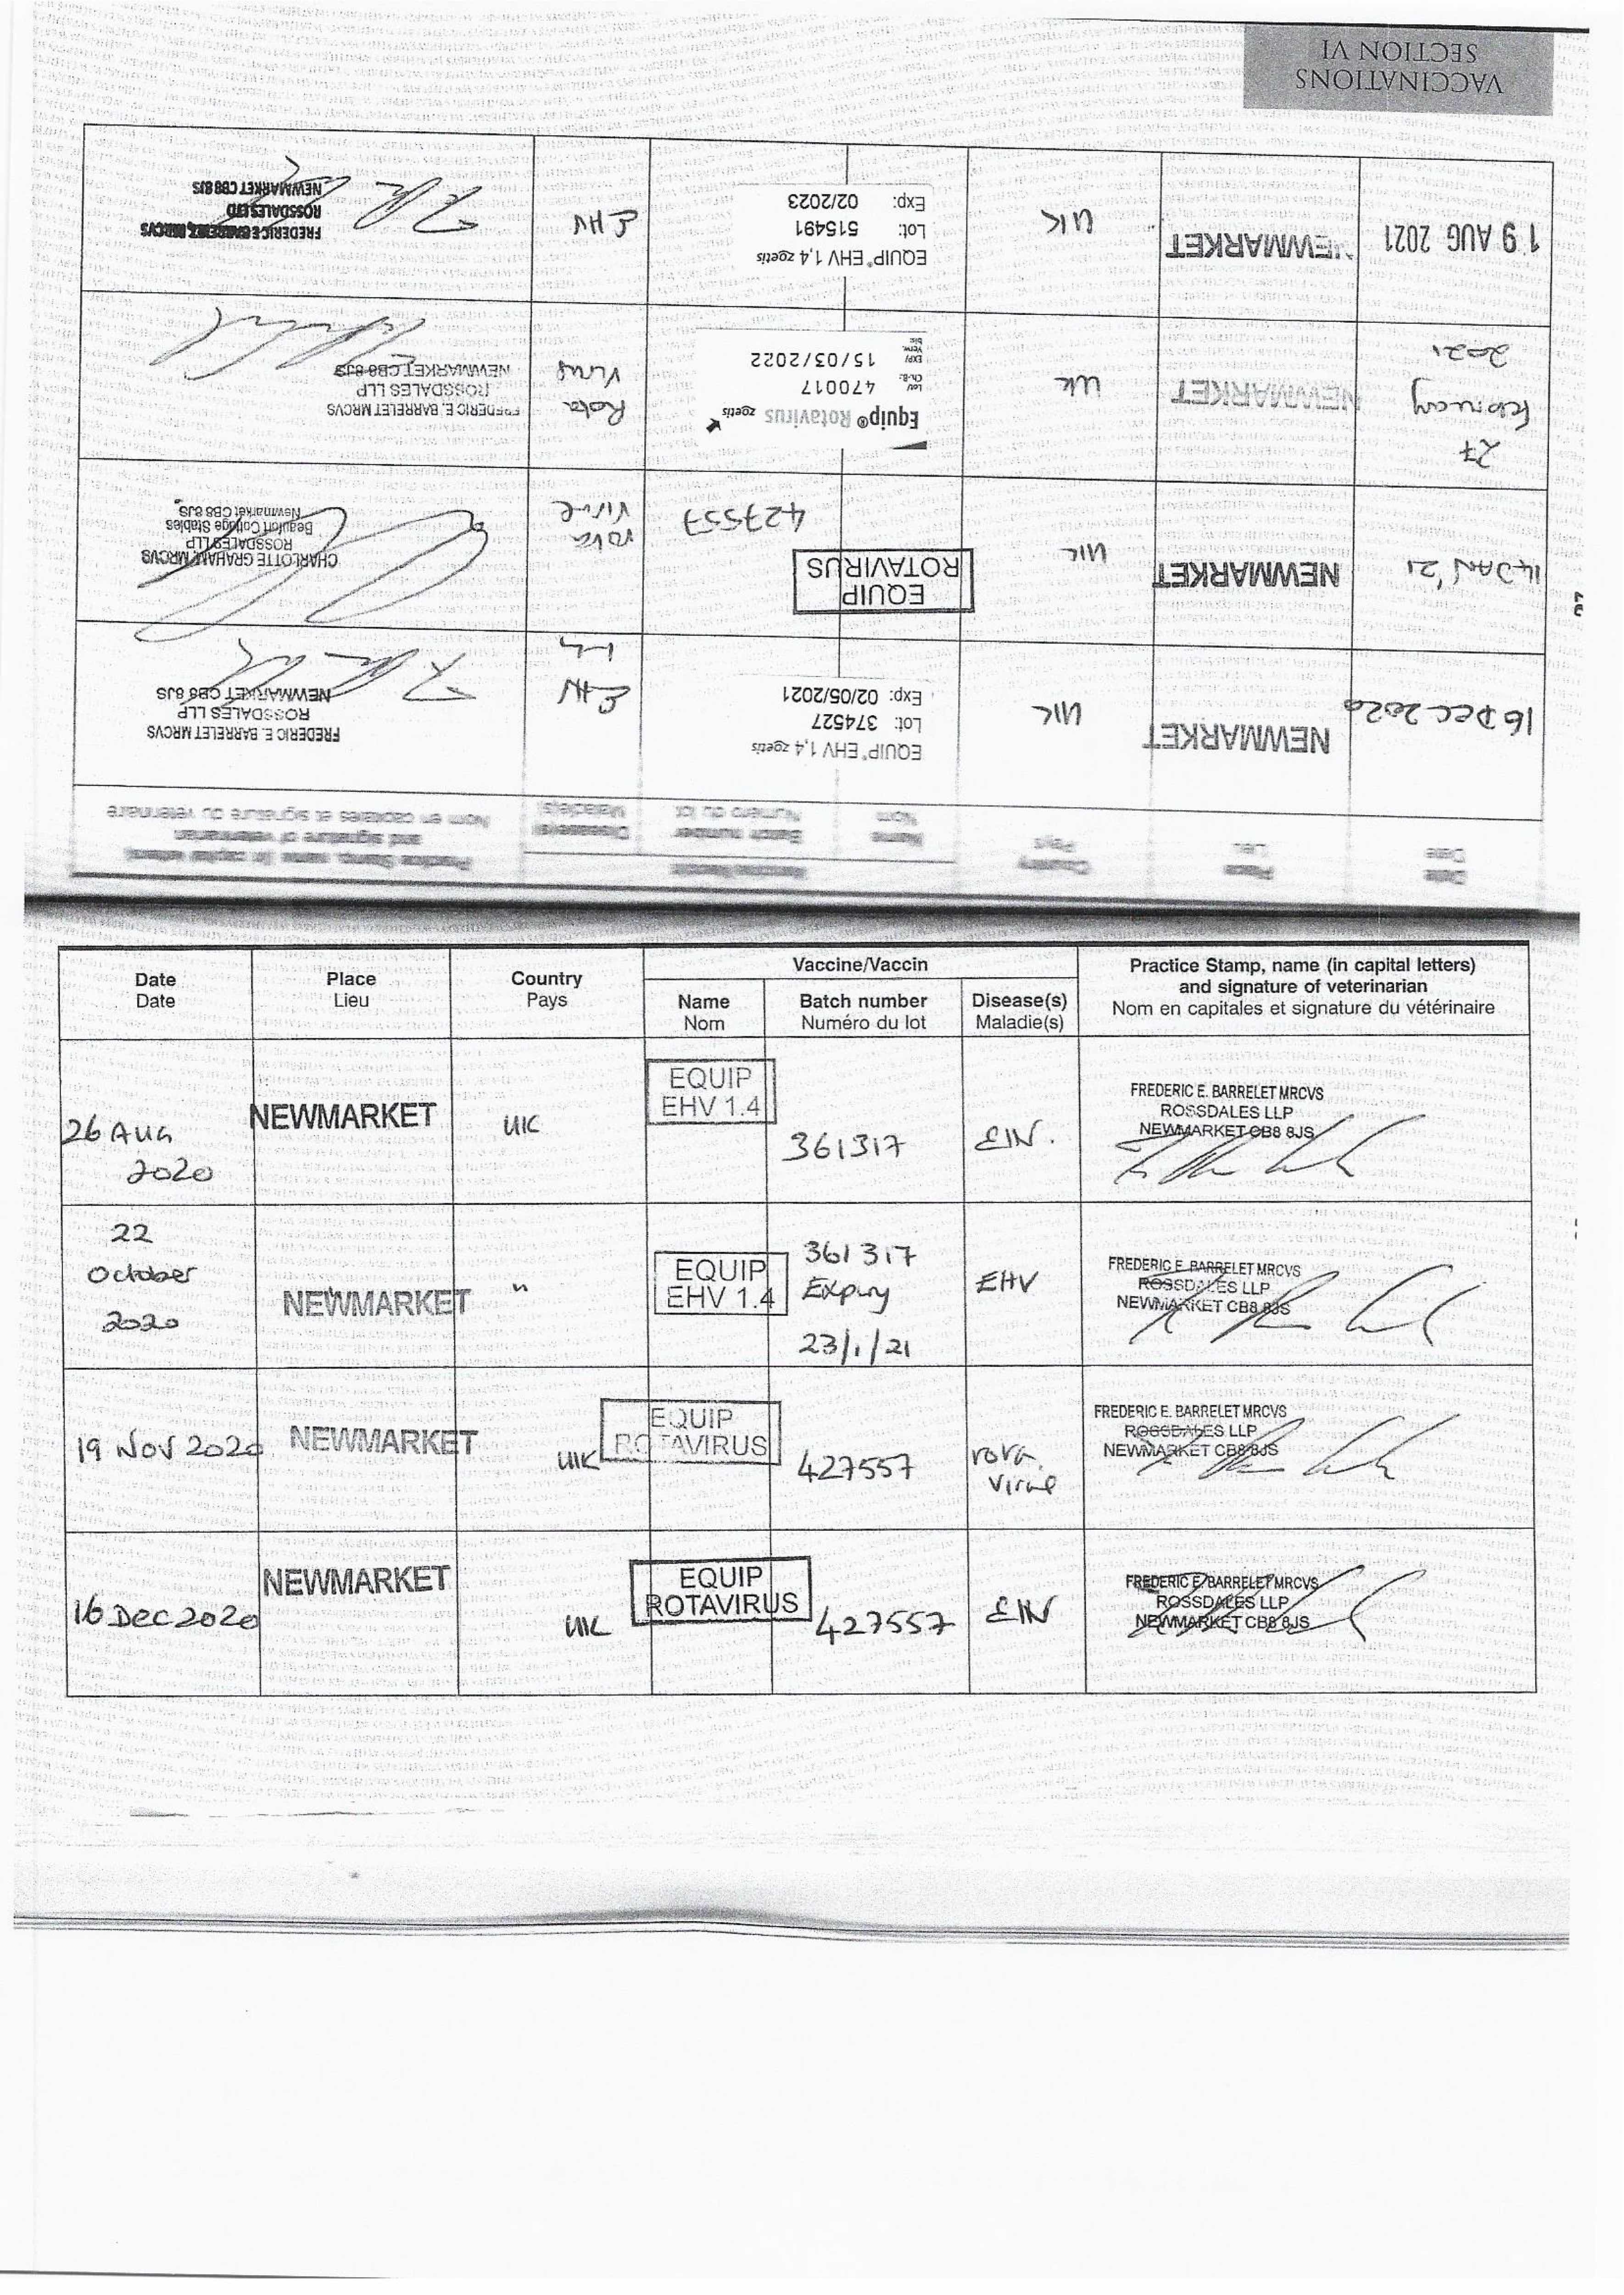 VACCINATIONS
SECTION VI
Date
Date
Place
Lieu
Country
Pays
Name
Nom
Batch number
Numéro du lot
Disease(s)
Maladie(s)
Practice Stamp, name (in capital letters)
and signature of veterinarian
Nom en capitales et signature du vétérinaire
16 DEC 2020
NEWMARKET
UK
EQUIP® EHV 1,4 zoetis
Lot: 374527
Exp: 02/05/2021
EHV
FREDERIC E. BARRELET MRCVS
ROSSDALES LLP
NEWMARKET CB8 8JS
14 JAN '21
NEWMARKET
UK
EQUIP
ROTAVIRUS
427557
rota
Virus
CHARLOTTE GRAHAM MRCVS
ROSSDALES LLP
Beaufort Cottage Stables
Newmarket CB8 8JS
27
February
2021
NEWMARKET
UK
Equip® Rotavirus zoetis
Lot/
Ch.-B.: 470017
EXP/ 15/03/2022
Rota
Virus
FREDERIC E. BARRELET MRCVS
ROSSDALES LLP
NEWMARKET CB8 8JS
19 AUG 2021
NEWMARKET
UK
EQUIP® EHV 1,4 zoetis
Lot: 515491
Exp: 02/2023
EHV
FREDERIC E MRCVS
ROSSDALES LTD
NEWMARKET CB8 8JS
Date
Date
Place
Lieu
Country
Pays
Vaccine/Vaccin
Name
Nom
Batch number
Numéro du lot
Disease(s)
Maladie(s)
Practice Stamp, name (in capital letters)
and signature of veterinarian
Nom en capitales et signature du vétérinaire
26 AUG
2020
NEWMARKET
UK
EQUIP
EHV 1.4
361317
EIN.
FREDERIC E. BARRELET MRCVS
ROSSDALES LLP
NEWMARKET CB8 8JS
22
October
2020
NEWMARKET
"
EQUIP
EHV 1.4
361317
Expiry
23/1/21
EHV
FREDERIC E. BARRELET MRCVS
ROSSDALES LLP
NEWMARKET CB8 8JS
19 NOV 2020
NEWMARKET
UK
EQUIP
ROTAVIRUS
427557
rota
Virus
FREDERIC E. BARRELET MRCVS
ROSSDALES LLP
NEWMARKET CB8 8JS
16 Dec 2020
NEWMARKET
UK
EQUIP
ROTAVIRUS
427557
EIN
FREDERIC E. BARRELET MRCVS
ROSSDALES LLP
NEWMARKET CB8 8JS